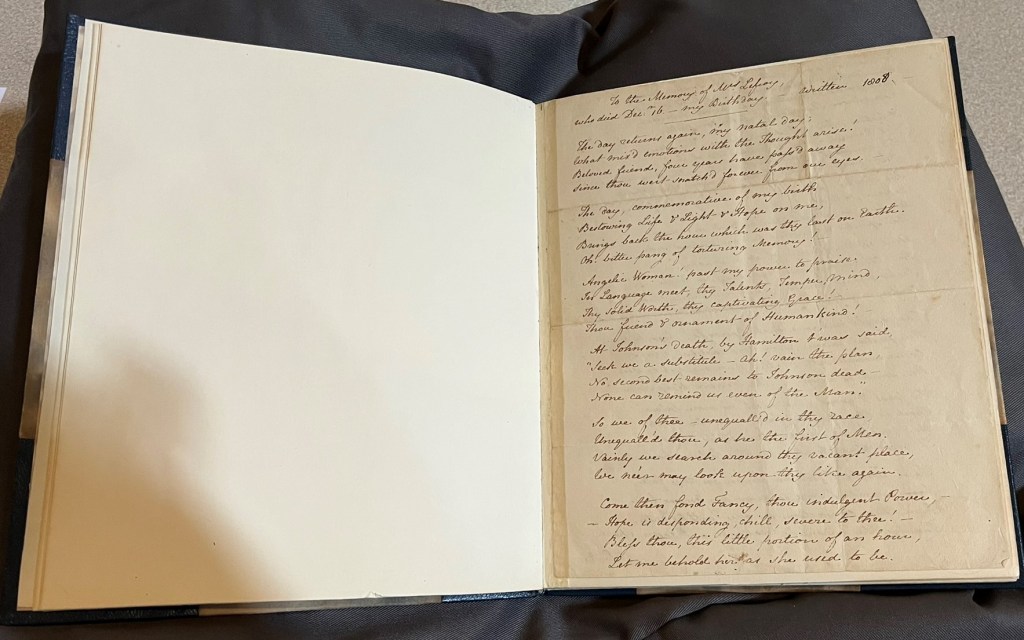 To the Memory of Mrs Lefroy,
who died Decr 16. — my Birthday. written 1808. —
The day returns again, my natal day;
What mix'd emotions with the Thought arise!
Beloved friend, four years have pass'd away
Since thou wert snatch'd forever from our eyes. —
The day, commemorative of my birth
Bestowing Life & Light & Hope on me,
Brings back the hour which was thy last on Earth.
Oh! bitter pang of torturing Memory! —
Angelic Woman! past my power to praise
In Language meet, thy Talents, Temper, mind,
Thy solid Worth, thy captivating Grace! —
Thou friend & ornament of Humankind! —
At Johnson's death, by Hamilton t'was said,
"Seek we a substitute — Ah! vain the plan,
No second best remains to Johnson dead —
None can remind us even of the Man."
So we of thee — unequall'd in thy race
Unequall'd thou, as he the first of Men.
Vainly we search around thy vacant place,
We ne'er may look upon thy like again.
Come then fond Fancy, thou indulgent Power, —
— Hope is desponding, chill, severe to thee! —
Bless thou, this little portion of an hour,
Let me behold her as she used to be.